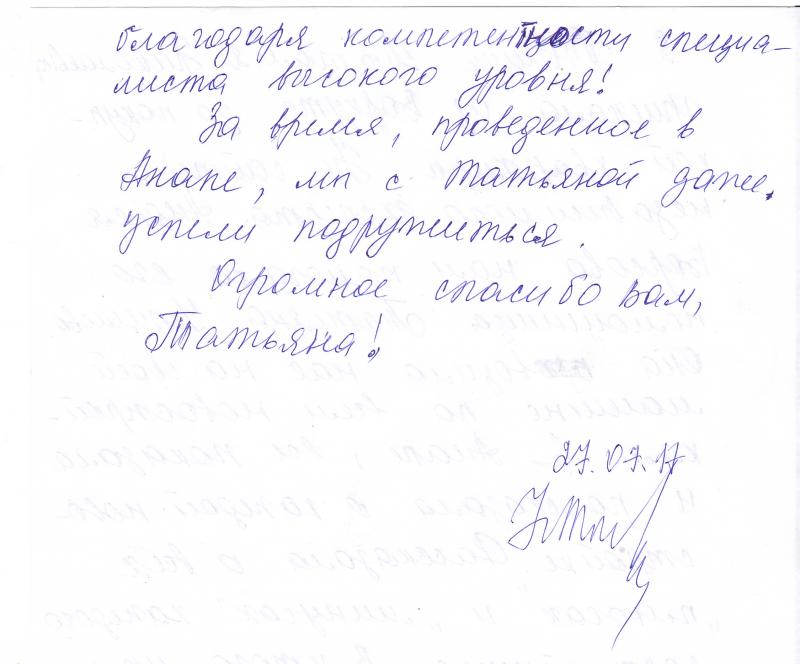 благодаря компетентности специа-
листа высокого уровня!
За время, проведенное в
Анапе, мы с Татьяной даже
успели подружиться.
Огромное спасибо Вам,
Татьяна!
27.07.17